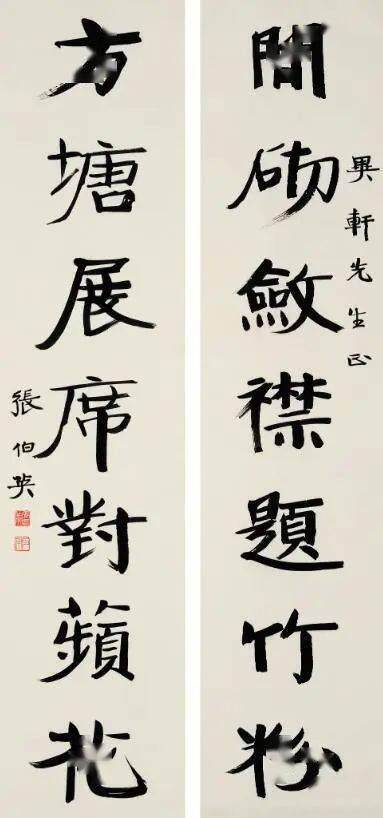 間砌斂襟題竹粉
異軒先生正
方塘展席對蘋花
張伯英